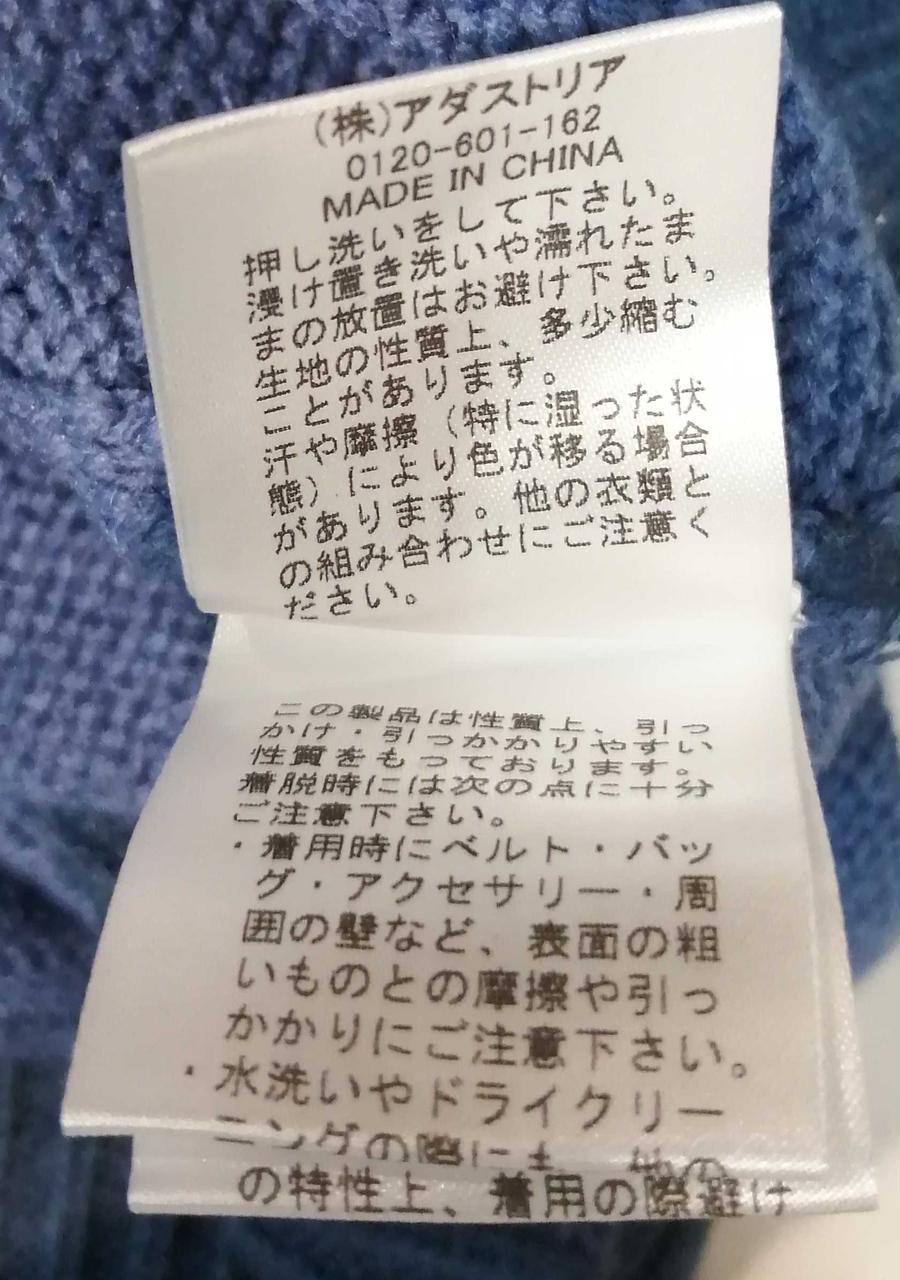 (株)アダストリア
0120-601-162
MADE IN CHINA
押し洗いをして下さい。
浸け置き洗いや濡れたま
まの放置はお避け下さい。
生地の性質上、多少縮む
ことがあります。
汗や摩擦（特に湿った状
態）により色が移る場合
があります。他の衣類と
の組み合わせにご注意く
ださい。
この製品は性質上、引っ
かけ・引っかかりやすい
性質をもっております。
着脱時には次の点に十分
ご注意下さい。
・着用時にベルト・バッ
グ・アクセサリー・周
囲の壁など、表面の粗
いものとの摩擦や引っ
かかりにご注意下さい。
・水洗いやドライクリー
ニングの際にも、他の
の特性上、着用の際避け